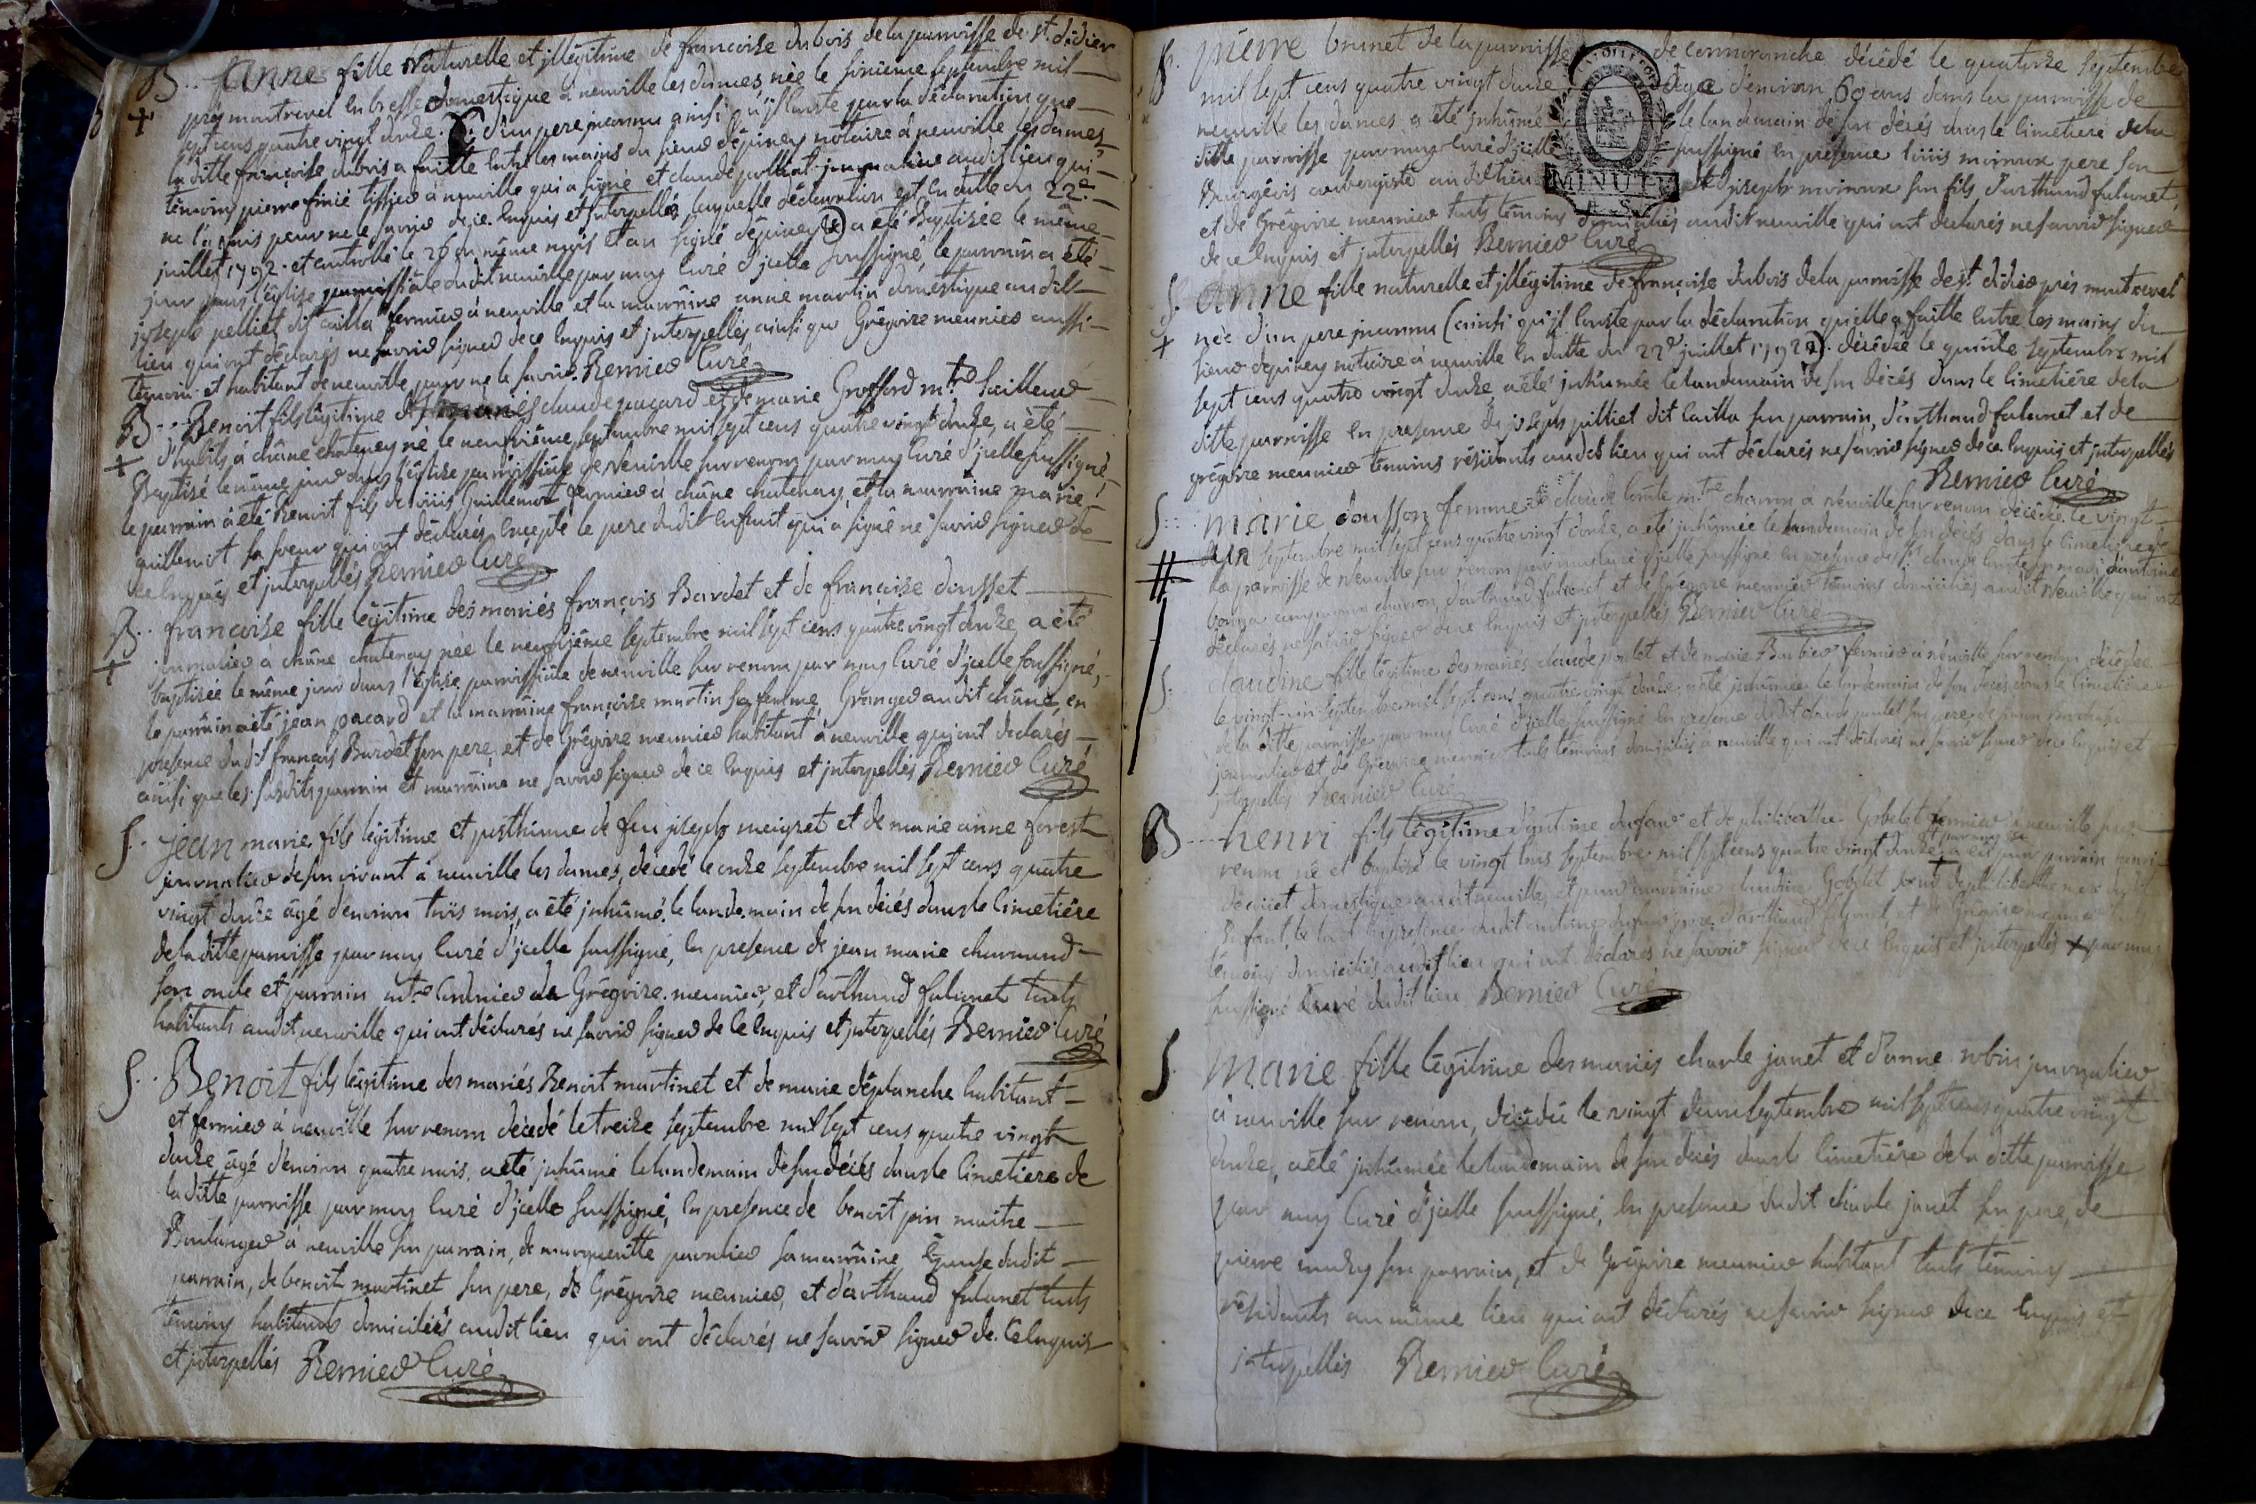 B. Anne fille naturelle et jllégitime de francoise dubois de la parroisse de st. didier
près montrevel en bresse domestique à neuville les dames, née le sixieme septembre mil
sept cens quatre vingt douze. d'un pere jnconnu ainsi qu'jl conste par la déclaration que
la ditte françoise dubois a faitte entre les mains du sieur dépiney notaire à neuville les dames,
témoins pierre finié tissier à neuville qui a signé et claude journalier audit lieu qui
ne l'a pour ne le savoir de ce enquis et jnterpellés, laquelle déclaration est en datte du 22e.
juillet 1792. et controllé le 26 du même mois et an signé dépiney a été Baptisée le même
jour dans l'église parroissiale dudit neuville par moy curé d'jcelle soussigné, le parrain a été
joseph pelliet dit cailla fermier à neuville et la marraine anne martin domestique audit
lieu qui ont déclarés ne savoir signer de ce enquis et jnterpellés ainsi que Grégoire meunier aussi
témoin et habitant de neuville pour ne le savoir. Bernier Curé
B. Benoit fils légitime des mariés claude pacard et de marie Grossard mtre tailleur
d'habits à châne chatenay né le neuvième septembre mil sept cens quatre vingt douze, a été
Baptisé le même jour dans l'église parroissiale de Neuville sur renom par moy curé d'jcelle soussigné,
le parrain à été Benoit fils de loüis Guillemot fermier à châne chatenay, et la marraine marie
guillemot sa soeur qui ont déclarés, excepté le pere dudit enfant qui à signé ne savoir signer de
ce enquis et jnterpellés Bernier Curé
B. francoise fille légitime des mariés françois Bardet et de francoise dousset
jornalier à châne chatenay née le neuvième septembre mil sept cens quatre vingt douze a été
baptisée le même jour dans l'église parroissiale de neuville sur renom par moy curé d'jcelle soussigné,
le parrain a été jean pacard et la marraine françoise martin sa femme, Granger audit châne, en
présence dudit françois Bardet son pere, et de Grégoire meunier habitant à neuville qui ont déclarés
ainsi que les susdits parrain et marraine ne savoir signer de ce enquis et jnterpellés Bernier Curé
S. jean marie fils légitime et posthume de feu joseph meigret et de marie anne forest
journalier de son vivant à neuville les dames, décédé le onze septembre mil sept cens quatre
vingt douze âgé d'environ trois mois, a été jnhumé le lendemain de son décés dans le cimetiére
de la ditte parroisse par moy curé d'jcelle soussigné, en presence de jean marie charnaud
son oncle et parrain de Grégoire meunier, et d'arthaud falconet touts
habitants audit neuville qui ont déclarés ne savoir signer de ce enquis et jnterpellés Bernier Curé
S. Benoit fils légitime des mariés Benoit martinet et de marie désplanche habitant
et fermier à neuville sur renom décédé le treize septembre mil sept cens quatre vingt
douze, âgé d'environ quatre mois, a été jnhumé le lendemain de son décés dans le cimetiere de
la ditte parroisse par moy curé d'jcelle soussigné, en presence de benoit poin maitre
Boulanger à neuville son parrain, de margueritte pavalier sa marraine Epouse dudit
parrain, de benoit martinet son pere, de Grégoire meunier, et d'arthaud falconet touts
témoins habitans domiciliés audit lieu qui ont déclarés ne savoir signer de ce enquis
et jnterpellés Bernier Curé
S. pierre brunet de la parroisse de cormoranche décédé le quatorze septembre
mil sept cens quatre vingt douze âgé d'environ 60 ans dans la parroisse de
neuville les dames a été jnhumé le lendemain de son décés dans le cimetiere de la
ditte parroisse par moy curé d'jcelle soussigné en présence loüis moiroux pere son
Bourgeois aubergiste audit lieu et joseph moiroux son fils d'arthaud falconet,
et de Grégoire meunier touts témoins domiciliés audit neuville qui ont déclarés ne savoir signer
de ce enquis et jnterpellés Bernier Curé
MINUTE
S. anne fille naturelle et jllégitime de françoise dubois de la parroisse de st. didier près montrevel
née d'un pere jnconnu (ainsi qu'jl conste par la déclaration qu'elle a faitte entre les mains du
sieur dépiney notaire à neuville en datte du 22e juillet 1792). décédée le quinze septembre mil
sept cens quatre vingt douze a été jnhumée le lendemain de son décés dans le cimetiére de la
ditte parroisse en presence de joseph pelliet dit cailla son parrain, d'arthaud falconet et de
grégoire meunier témoins résidents audit lieu qui ont déclarés ne savoir signer de ce enquis et jnterpellés
Bernier Curé
S. marie dousson femme claude comte mtre charron à neuville sur renom décédée le vingt
un septembre mil sept cens quatre vingt douze, a été jnhumée le lendemain de son décés dans le cimetiere de
la parroisse de Neuville sur renom par moy curé d'jcelle soussigné en presence de claude comte son mari, d'antoine
charron, d'arthaud falconet et de Grégoire meunier témoins domiciliés audit Neuville qui ont
déclarés ne savoir signer de ce enquis et jnterpellés Bernier Curé
S. claudine fille légitime des mariés claude poulet et de marie Barbier fermier à neuville sur renom décédée
le vingt un septembre mil sept cens quatre vingt douze, a été jnhumée le lendemain de son décés dans le cimetiére
de la ditte parroisse par moy curé d'jcelle soussigné en presence dudit claude poulet son pere,
journalier et de Grégoire meunier touts témoins domiciliés à neuville qui ont déclarés ne savoir signer de ce enquis et
jnterpellés Bernier Curé
B. henri fils légitime d'antoine dufour et de philiberthe Gobelet fermier à neuville sur
renom né et baptisé le vingt trois septembre mil sept cens quatre vingt douze a été pour parrain henri
domestique audit neuville, et pour marraine claudine Gobelet soeur de philiberthe mere dudit
Enfant, le tout en présence dudit antoine dufour pere d'arthaud falconet, et de Grégoire meunier
témoins domiciliés audit lieu qui ont déclarés ne savoir signer de ce enquis et jnterpellés + par moy
soussigné Curé dudit lieu Bernier Curé
S. Marie fille légitime des mariés charle janet et d'anne robin journalier
à neuville sur renom, décédée le vingt septembre mil sept cens quatre vingt
douze, a été jnhumée le lendemain de son décés dans le cimetière de la ditte parroisse
par moy curé d'jcelle soussigné, en presence dudit charle janet son pere, de
pierre son parrain, et de Grégoire meunier habitant touts témoins
résidents au même lieu qui ont déclarés ne savoir signer de ce enquis et
jnterpellés Bernier Curé